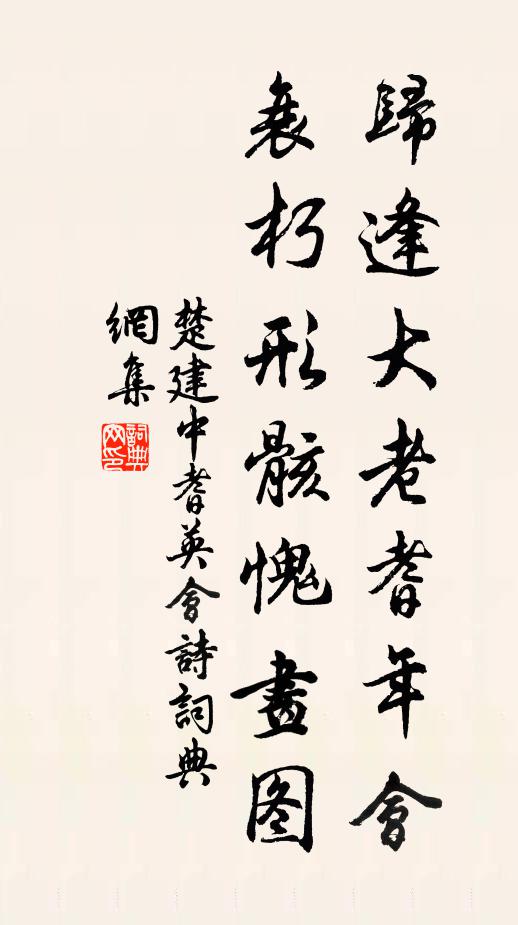 歸逢大老耆年會
衰朽形骸愧畫图
楚建中耆英會詩詞典
網集
詞典网印